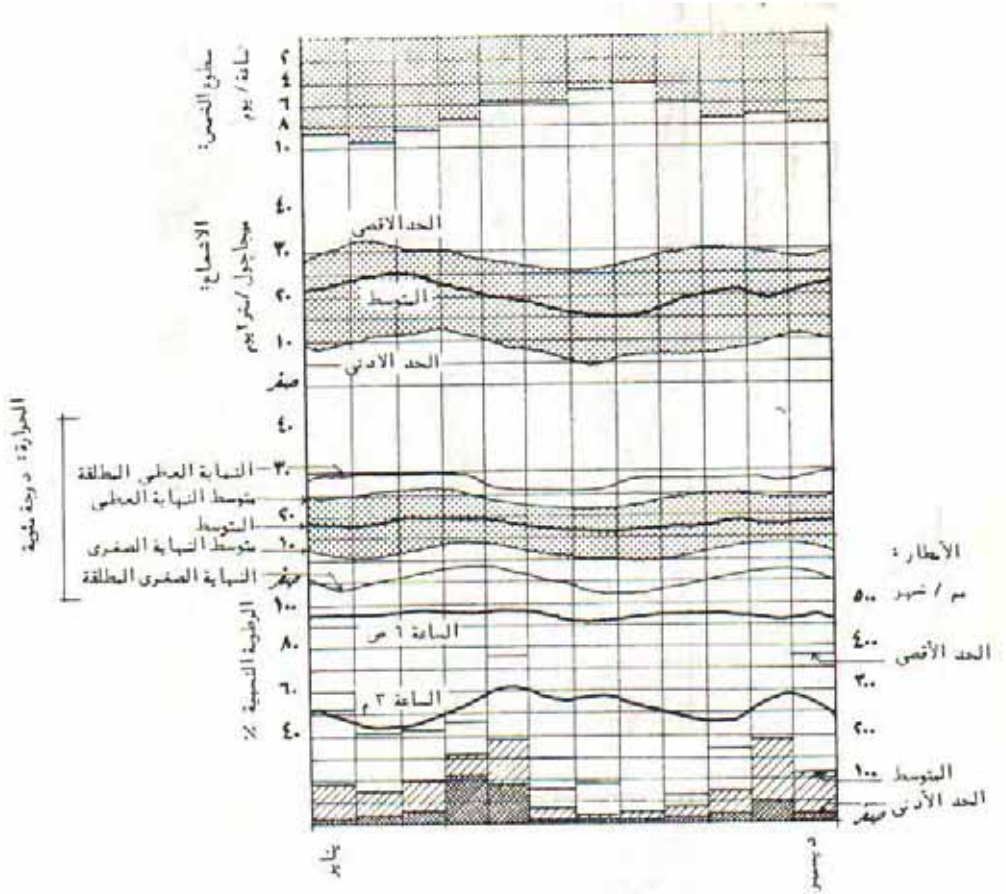 سطوع الشمس:
ساعة / يوم
٢
٤
٦
٨
١٠
الاشعاع:
ميجاجول/متر٢يوم
٤٠
٣٠
٢٠
١٠
صفر
الحد الاقصى
المتوسط
الحد الادنى
الحرارة: درجة مئوية
٤٠
٣٠
٢٠
١٠
صفر
النهاية العظمى المطلقة
متوسط النهاية العظمى
المتوسط
متوسط النهاية الصغرى
النهاية الصغرى المطلقة
الرطوبة النسبية ٪
١٠٠
٨٠
٦٠
٤٠
الساعة ٦ ص
الساعة ٣ م
الأمطار:
مم / شهر
٥٠٠
٤٠٠
الحد الأقصى
٣٠٠
٢٠٠
١٠٠
المتوسط
الحد الأدنى
صفر
يناير
ديسمبر